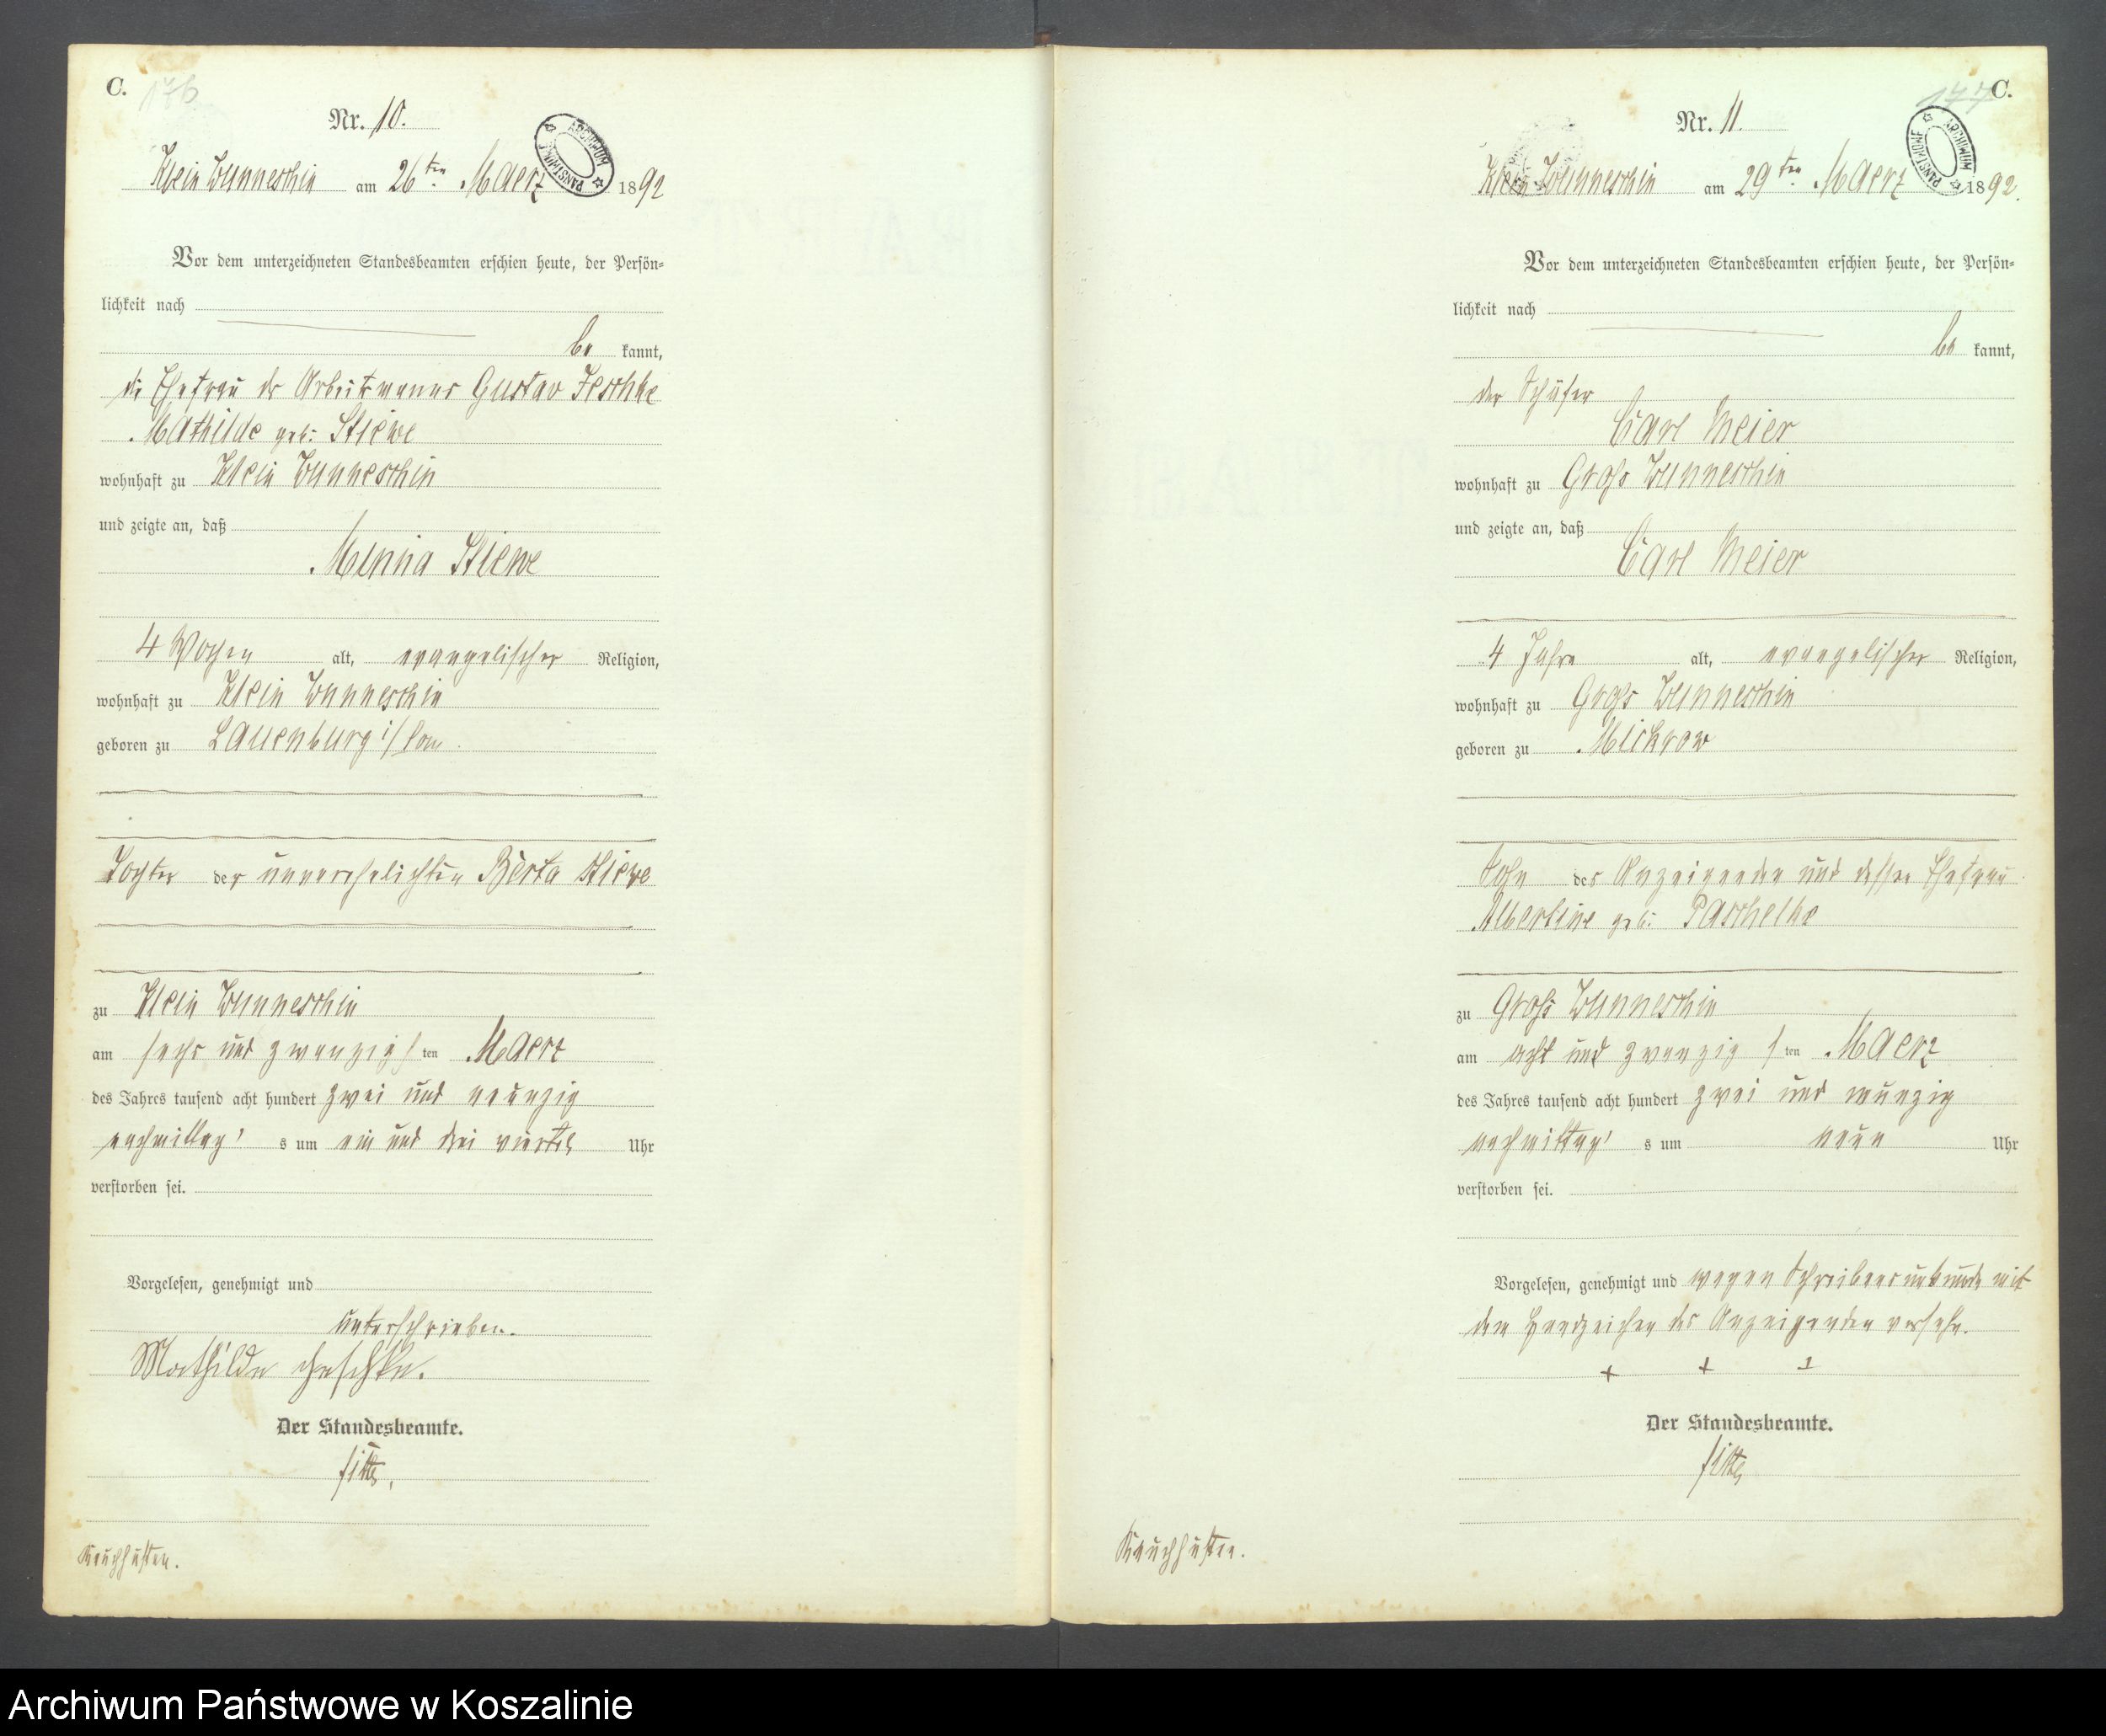 C.
176
Nr. 10.
ARCHIWUM PAŃSTWOWE
Klein Wunneschin am 26ten Maerz 1892
Vor dem unterzeichneten Standesbeamten erschien heute, der Persön-
lichkeit nach
be kannt,
die Ehefrau des Arbeitsmannes Gustav Jeschke
Mathilde geb: Stiewe
wohnhaft zu Klein Wunneschin
und zeigte an, daß
Minna Stiewe
4 Wochen alt, evangelischer Religion,
wohnhaft zu Klein Wunneschin
geboren zu Lauenburg i/Pom.
Tochter der unverehelichten Berta Stiewe
zu Klein Wunneschin
am sechs und zwanzigsten Maerz
des Jahres tausend acht hundert zwei und neunzig
nachmittags um ein und drei viertel Uhr
verstorben sei.
Vorgelesen, genehmigt und
unterschrieben.
Mathilde Jeschke.
Der Standesbeamte.
Keuchhusten.
177
C.
Nr. 11.
ARCHIWUM PAŃSTWOWE
Klein Wunneschin am 29ten Maerz 1892.
Vor dem unterzeichneten Standesbeamten erschien heute, der Persön-
lichkeit nach
be kannt,
der Schäfer
Carl Meier
wohnhaft zu Groß Wunneschin
und zeigte an, daß
Carl Meier
4 Jahre alt, evangelischer Religion,
wohnhaft zu Groß Wunneschin
geboren zu Mickrow
Sohn des Anzeigenden und dessen Ehefrau
Albertine geb: Paschelke
zu Groß Wunneschin
am acht und zwanzigsten Maerz
des Jahres tausend acht hundert zwei und neunzig
nachmittags um neun Uhr
verstorben sei.
Vorgelesen, genehmigt und wegen Schreibensunkunde mit
dem Handzeichen des Anzeigenden versehn.
+ + +
Der Standesbeamte.
Keuchhusten.
Archiwum Państwowe w Koszalinie